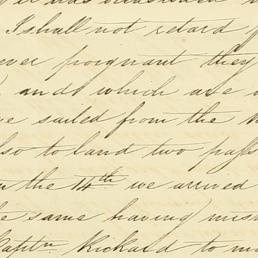 I shall not retard
ever poignant they
ands which are
we sailed from the
also to land two pass
the 14th we arrived
the same having
Captn. Rickard to